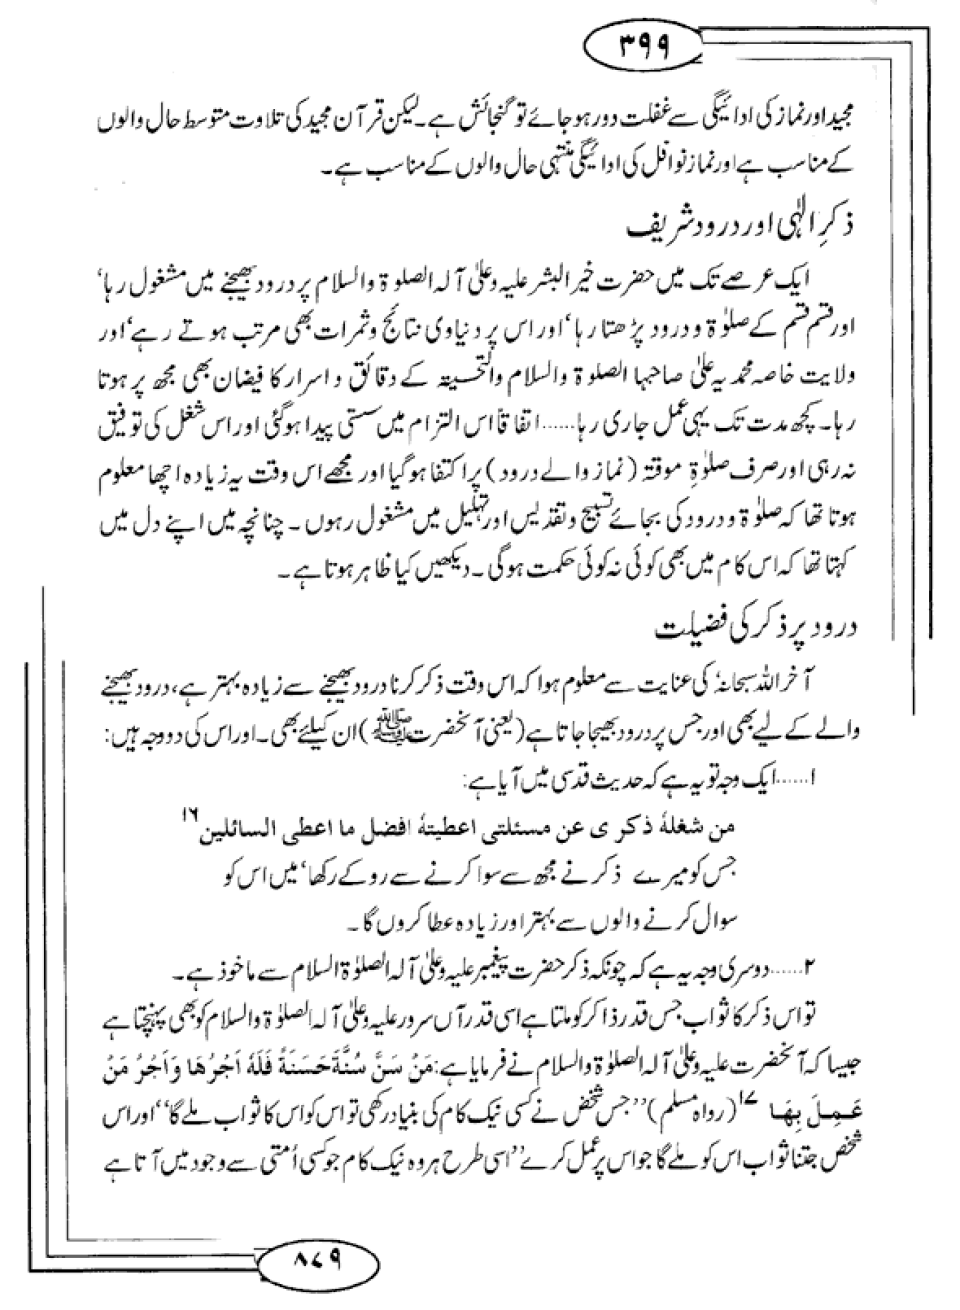 ۳۹۹
مجید اور نماز کی ادائیگی سے غفلت دور ہو جائے تو گنجائش ہے۔ لیکن قرآن مجید کی تلاوت متوسط حال والوں
کے مناسب ہے اور نماز نوافل کی ادائیگی منتہی حال والوں کے مناسب ہے۔
ذکرِ الٰہی اور درود شریف
ایک عرصے تک میں حضرت خیر البشر علیہ وعلیٰ آلہ الصلوۃ والسلام پر درود بھیجنے میں مشغول رہا‘
اور قسم قسم کے صلوٰۃ و درود پڑھتا رہا‘ اور اس پر دنیاوی نتائج و ثمرات بھی مرتب ہوتے رہے‘ اور
ولایت خاصہ محمدیہ علیٰ صاحبہا الصلوۃ والسلام والتحیتہ کے دقائق و اسرار کا فیضان بھی مجھ پر ہوتا
رہا۔ کچھ مدت تک یہی عمل جاری رہا...... اتفاقاً اس التزام میں سستی پیدا ہوگئی اور اس شغل کی توفیق
نہ رہی اور صرف صلوٰۃِ موقتہ (نماز والے درود) پر اکتفا ہوگیا اور مجھے اس وقت یہ زیادہ اچھا معلوم
ہوتا تھا کہ صلوٰۃ و درود کی بجائے تسبیح و تقدیس اور تہلیل میں مشغول رہوں۔ چنانچہ میں اپنے دل میں
کہتا تھا کہ اس کام میں بھی کوئی نہ کوئی حکمت ہوگی۔ دیکھیں کیا ظاہر ہوتا ہے۔
درود پر ذکر کی فضیلت
آخر اللہ سبحانہٗ کی عنایت سے معلوم ہوا کہ اس وقت ذکر کرنا درود بھیجنے سے زیادہ بہتر ہے، درود بھیجنے
والے کے لیے بھی اور جس پر درود بھیجا جاتا ہے (یعنی آنحضرت ﷺ) ان کیلئے بھی۔ اور اس کی دو وجہ ہیں:
۱...... ایک وجہ تو یہ ہے کہ حدیث قدسی میں آیا ہے:
من شغلہٗ ذکری عن مسئلتی اعطیتہٗ افضل ما اعطی السائلین ۱۶
جس کو میرے ذکر نے مجھ سے سوا کرنے سے روکے رکھا‘ میں اس کو
سوال کرنے والوں سے بہتر اور زیادہ عطا کروں گا۔
۲...... دوسری وجہ یہ ہے کہ چونکہ ذکر حضرت پیغمبر علیہ وعلیٰ آلہ الصلوٰۃ السلام سے ماخوذ ہے۔
تو اس ذکر کا ثواب جس قدر ذاکر کو ملتا ہے اسی قدر آں سرور علیہ وعلیٰ آلہ الصلوٰۃ والسلام کو بھی پہنچتا ہے
جیسا کہ آنحضرت علیہ وعلیٰ آلہ الصلوٰۃ والسلام نے فرمایا ہے: مَنْ سَنَّ سُنَّةً حَسَنَةً فَلَهٗ اَجْرُهَا وَاَجْرُ مَنْ
عَمِلَ بِهَا ۱۷ (رواہ مسلم) ’’جس شخص نے کسی نیک کام کی بنیاد رکھی تو اس کو اس کا ثواب ملے گا‘‘ اور اس
شخص جتنا ثواب اس کو ملے گا جو اس پر عمل کرے‘‘ اسی طرح ہر وہ نیک کام جو کسی اُمتی سے وجود میں آتا ہے
۸۷۹